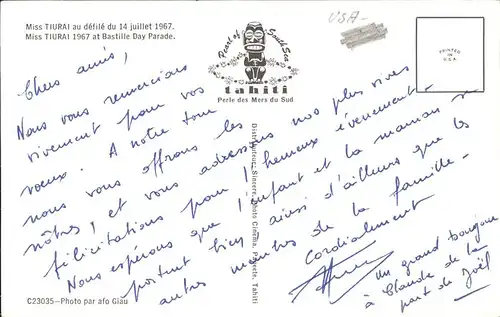 Miss TIURAI au défilé du 14 juillet 1967.
Miss TIURAI 1967 at Bastille Day Parade.
USA-
Pearl of South Sea
tahiti
Perle des Mers du Sud
PRINTED
IN
U.S.A.
Chers amis,
Nous vous remercions
vivement pour vos
voeux. A notre tour
nous vous offrons les
nôtres! et vous adressons nos plus vives
félicitations pour l'heureux évènement.
Nous espérons que l'enfant et la maman se
portent bien, ainsi d'ailleurs que les
autres membres de la famille.
Cordialement
Un grand bonjour
à Claude de la
part de Joël
Distributeur: Sincere, Photo Cinema, Papeete, Tahiti
C23035-Photo par afo Giau